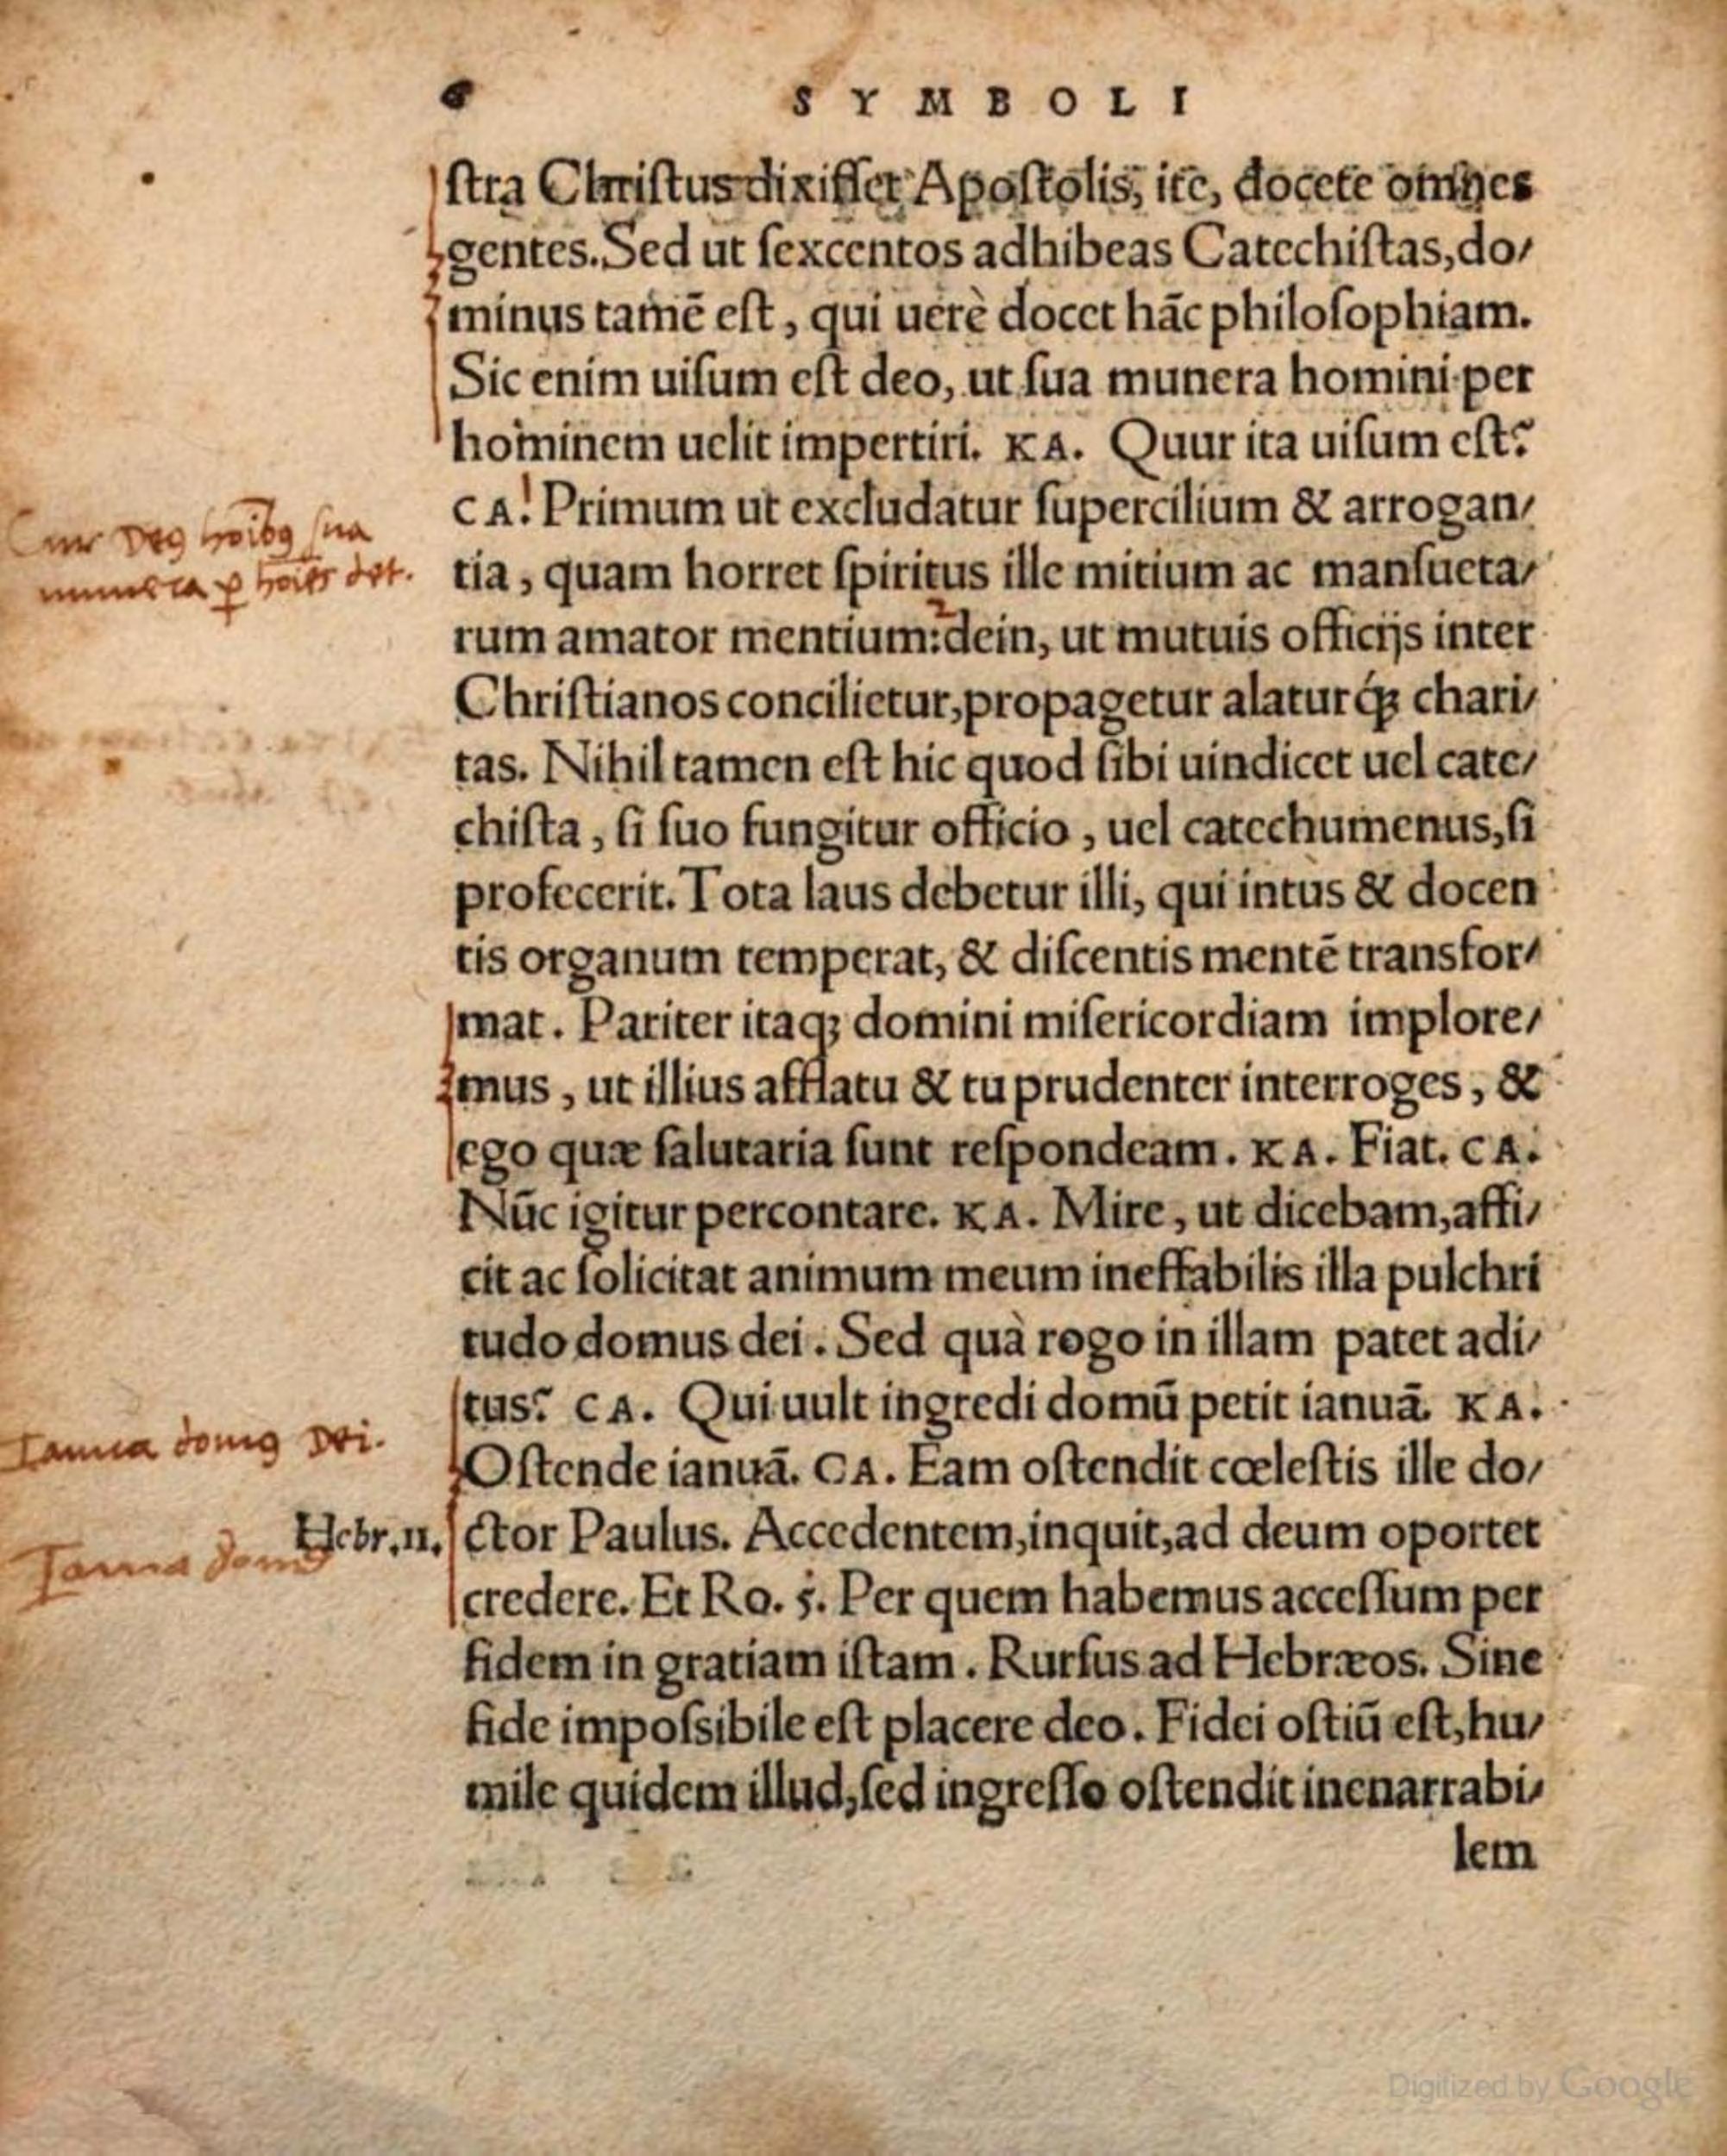 6 SYMBOLI
ſtra Chriſtus dixiſſet Apoſtolis, ite, docete omnes
gentes. Sed ut ſexcentos adhibeas Catechiſtas, do/
minus tamē eſt, qui uerè docet hāc philoſophiam.
Sic enim uiſum eſt deo, ut ſua munera homini per
hominem uelit impertiri. KA. Quur ita uiſum eſt?
Cur deus hoībus ſua
munera ꝑ hoīes det.
CA. Primum ut excludatur ſupercilium & arrogan/
tia, quam horret ſpiritus ille mitium ac manſueta/
rum amator mentium: dein, ut mutuis officijs inter
Chriſtianos concilietur, propagetur alaturq́ꝫ chari/
tas. Nihil tamen eſt hic quod ſibi uindicet uel cate/
chiſta, ſi ſuo fungitur officio, uel catechumenus, ſi
profecerit. Tota laus debetur illi, qui intus & docen
tis organum temperat, & diſcentis mentē transfor/
mat. Pariter itaqꝫ domini miſericordiam implore/
mus, ut illius afflatu & tu prudenter interroges, &
ego quæ ſalutaria ſunt reſpondeam. KA. Fiat. CA.
Nūc igitur percontare. KA. Mire, ut dicebam, affi/
cit ac ſolicitat animum meum ineffabilis illa pulchri
tudo domus dei. Sed quà rogo in illam patet adi/
tus? CA. Qui uult ingredi domū petit ianuā. KA.
Ianua domus Dei.
Oſtende ianuā. CA. Eam oſtendit cœleſtis ille do/
Hebr. 11.
Ianua domus
ctor Paulus. Accedentem, inquit, ad deum oportet
credere. Et Ro. 5. Per quem habemus acceſſum per
fidem in gratiam iſtam. Rurſus ad Hebræos. Sine
fide impoſsibile eſt placere deo. Fidei oſtiū eſt, hu/
mile quidem illud, ſed ingreſſo oſtendit inenarrabi/
lem
Digitized by Google